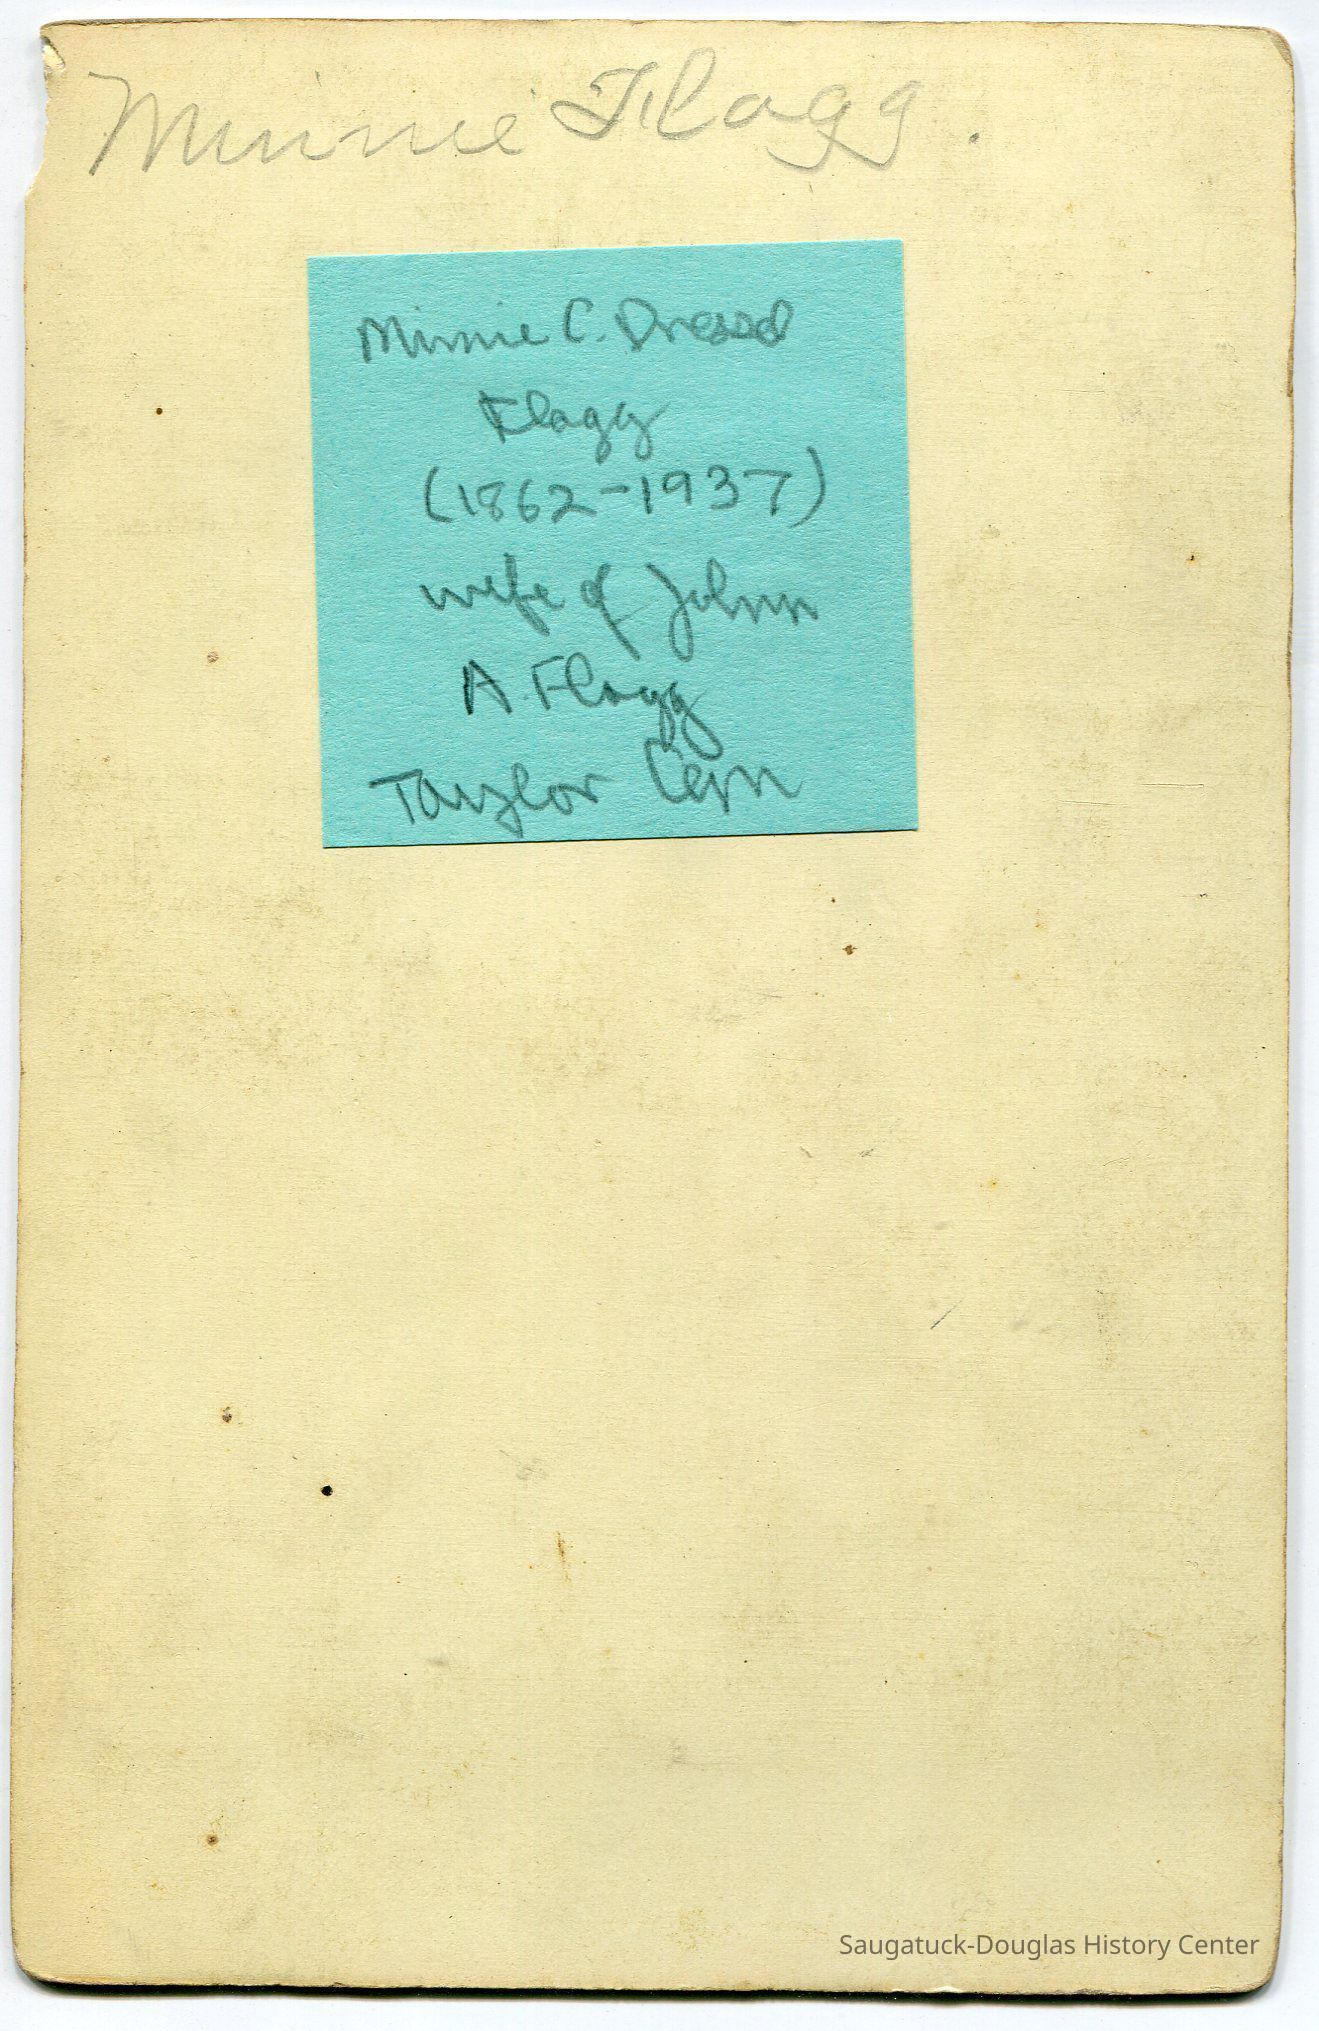 Minnie Flagg.
Minnie C. Dressel
Flagg
(1862-1937)
wife of John
A. Flagg
Taylor Cem
Saugatuck-Douglas History Center